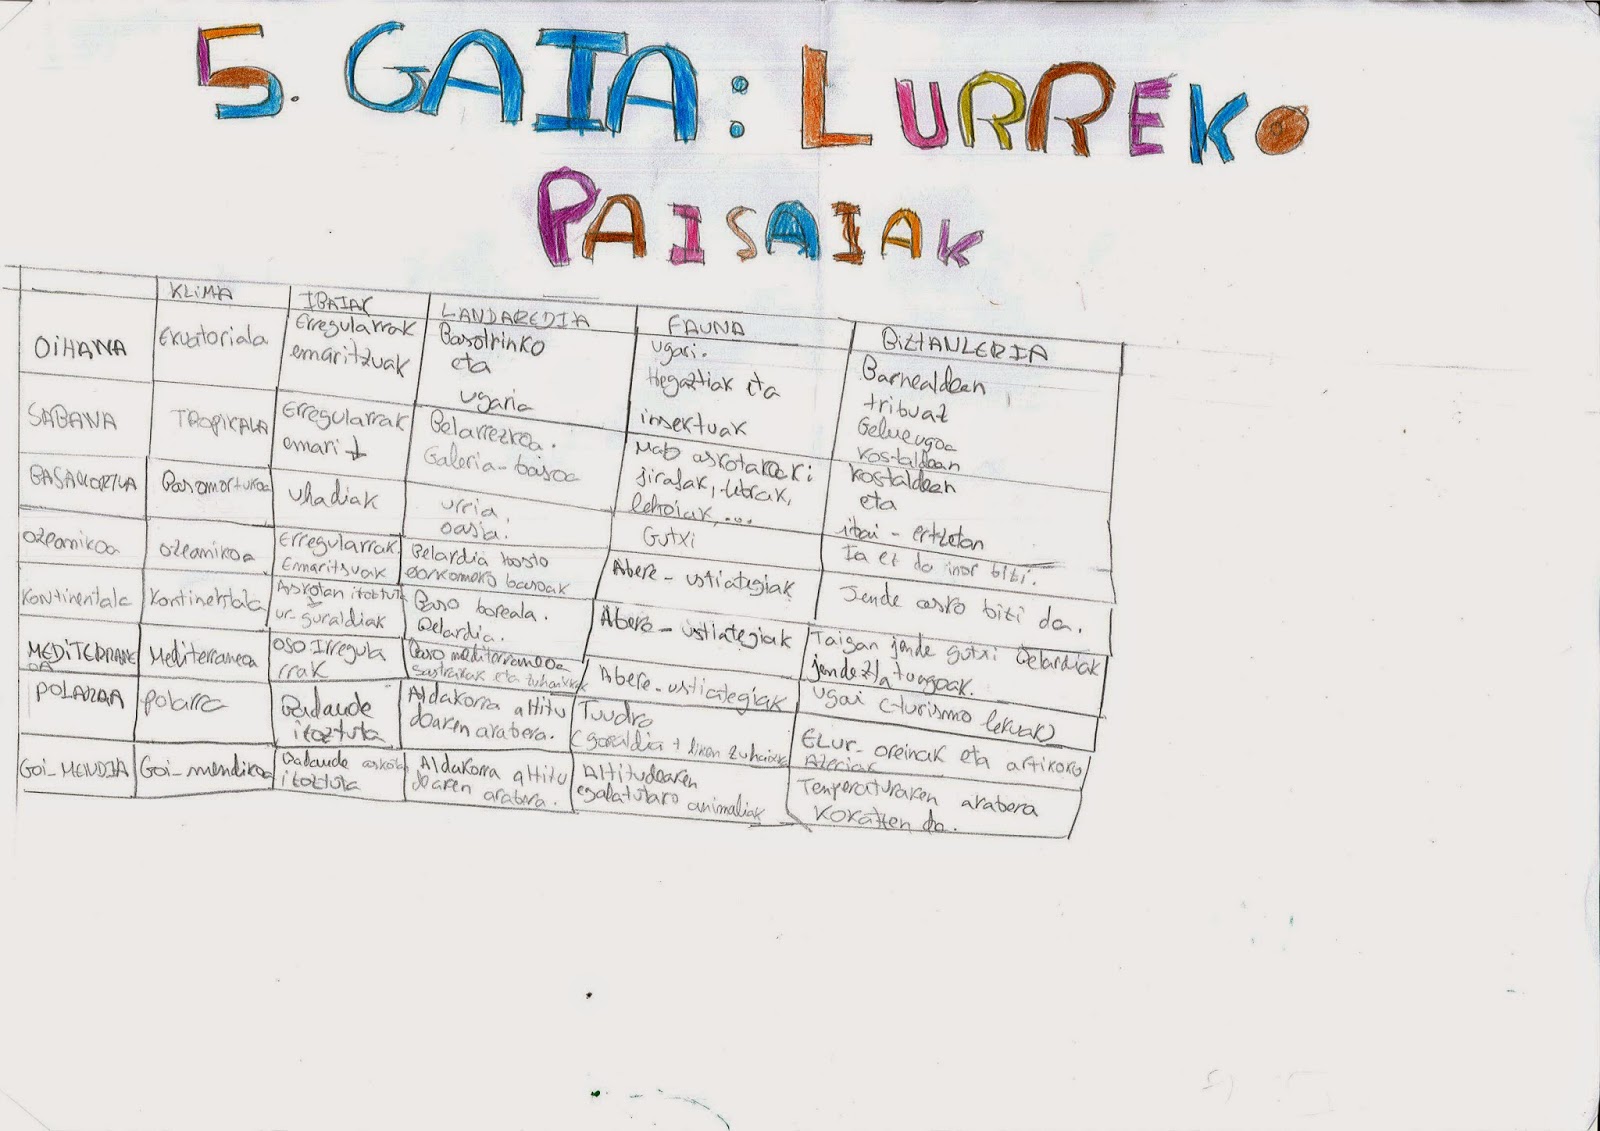 5. GAIA: LURREKO
PAISAIAK
KLIMA
IBAIAK
LANDAREDIA
FAUNA
BIZTANLERIA
OIHANA
Ekuatoriala
Erregularrak
emaritzuak
Basotrinko
eta
ugaria
ugari.
Hegaztiak eta
insektuak
Barnealdean
tribuaz
kostaldean
SABANA
TROPIKALA
Erregularrak
emari ↓
Belarrezkoa.
Galeria-basoa
jirafak, zebrak,
lehoiak, ...
kostaldean
eta
ibai-ertzetan
BASAMORTUA
Basamortukoa
uhadiak
urria.
oasia.
Gutxi
Ia ez da inor bizi.
ozeanikoa
ozeanikoa
Erregularrak.
Emaritsuak
Belardia hosto
erorkorreko basoak
Abere-ustiategiak
Jende asko bizi da.
kontinentala
kontinentala
Askotan izoztuta
ur-guraldiak
Baso boreala.
Belardia.
Abere-ustiategiak
Taigan jende gutxi Belardiak
jendeztatuagoak.
MEDITERRANE
OA
Mediterraneoa
OSO Irregula
rrak
Baso mediterraneoa
sastrakak eta zuhaixkak
Abere-ustiategiak
ugari (turismo lekuak)
POLARRA
polarra
Badaude
izoztuta
Aldakorra altitu
dearen arabera.
Tundra
(goroldia + liken zuhaixka
ELur-oreinak eta artikoko
Azeriak
GOI-MENDIA
Goi-mendikoa
Badaude askotan
izoztuta
Aldakorra altitu
dearen arabera.
Altitudearen
egokitutako animaliak
Temperaturaren arabera
kokatzen da.